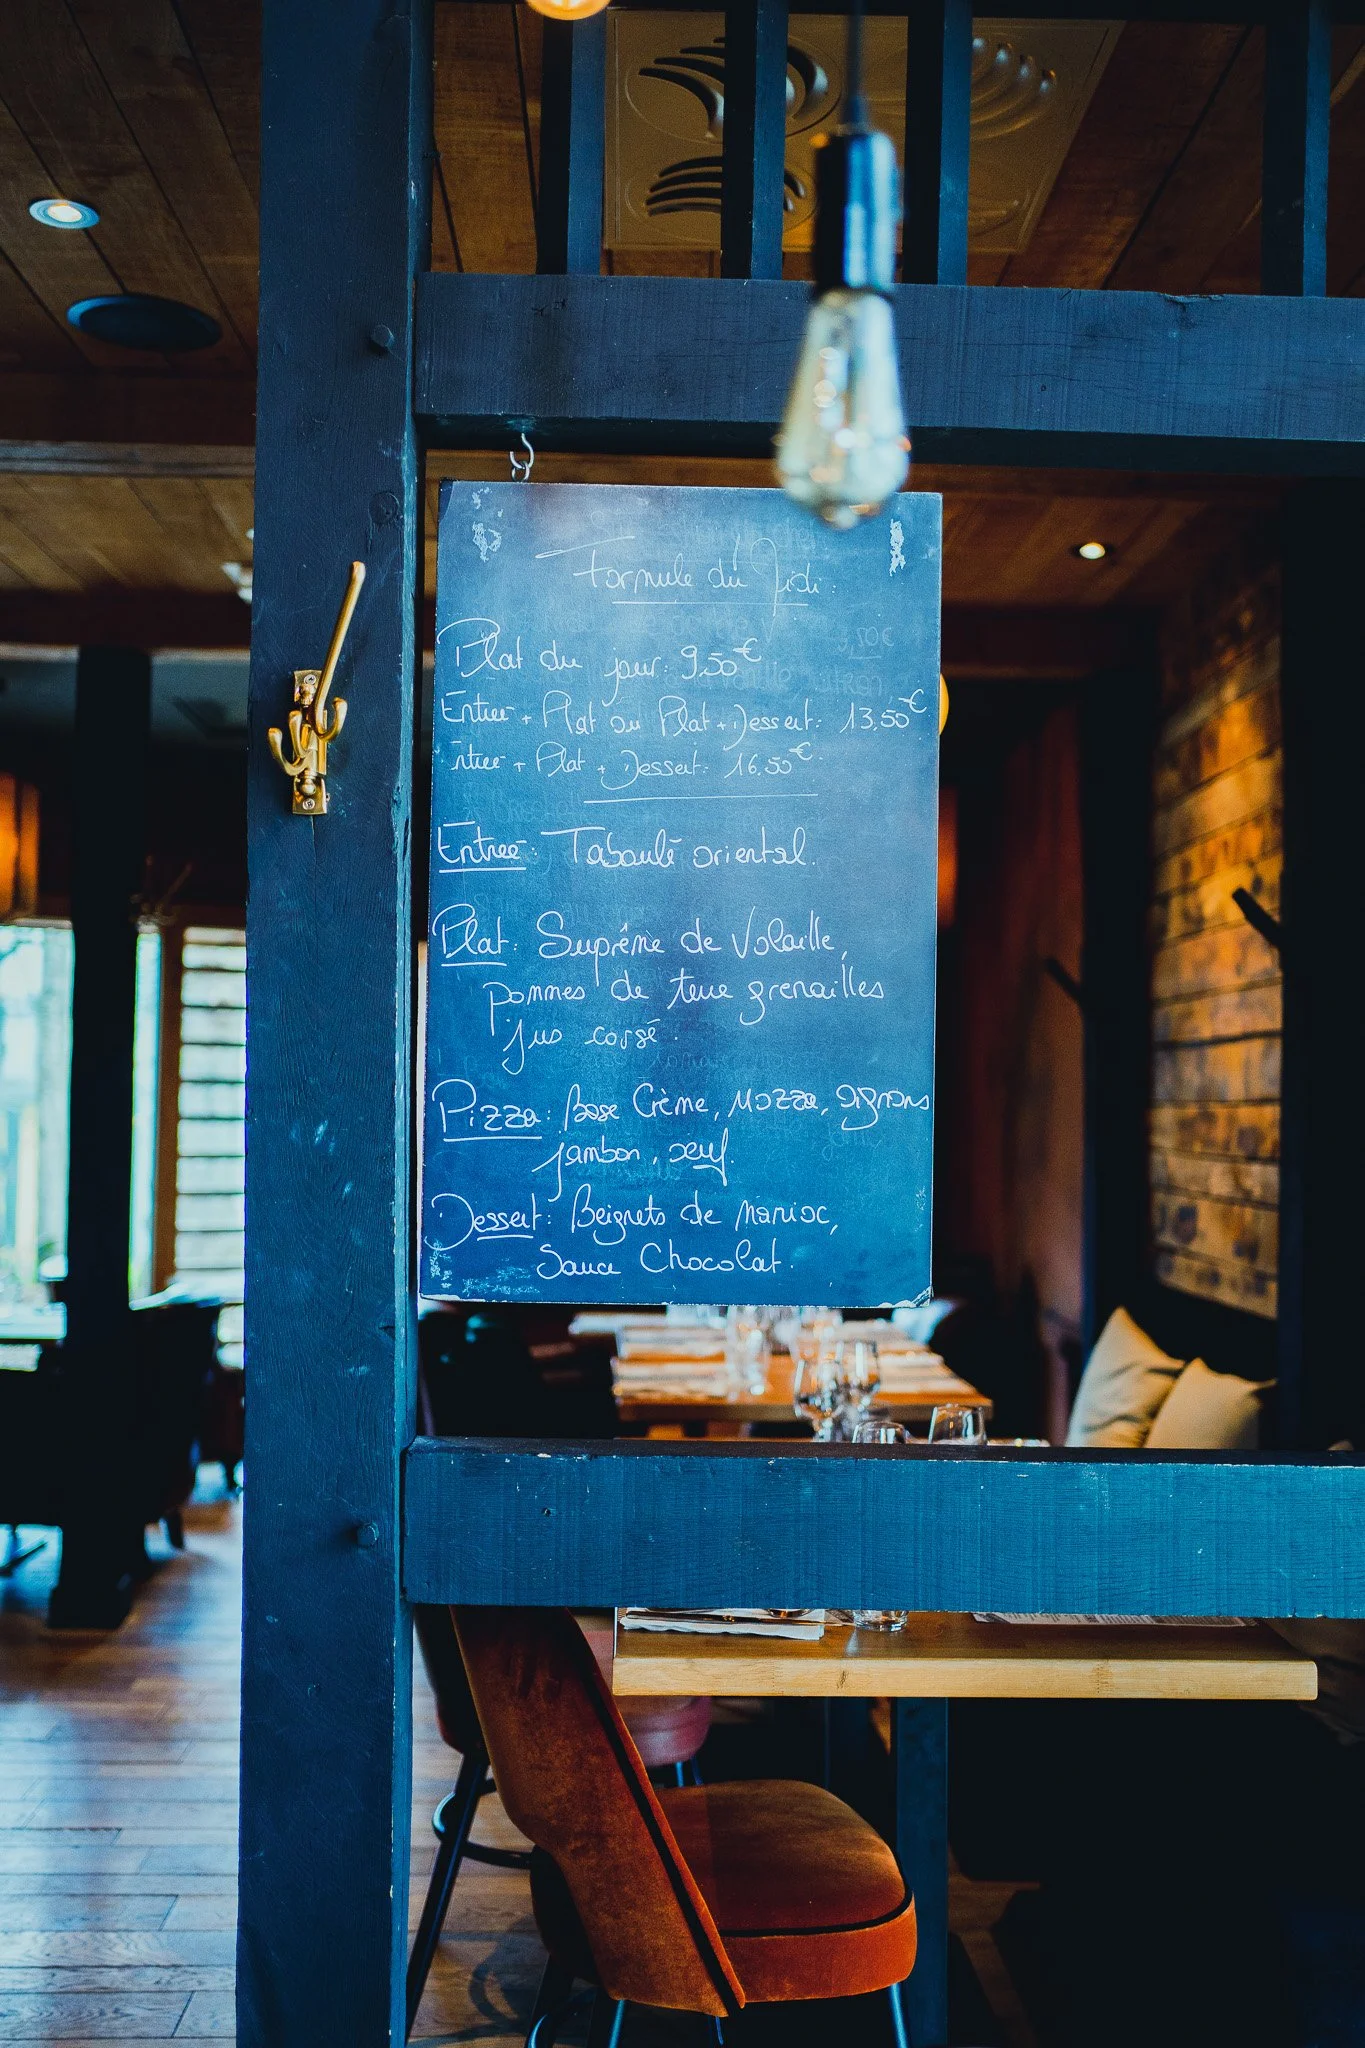 Formule du Midi :
Plat du jour : 9,50€
Entrée + Plat ou Plat + Dessert : 13,50€
Entrée + Plat + Dessert : 16,50€
Entrée : Taboulé oriental.
Plat : Suprême de Volaille,
pommes de terre grenailles
jus corsé.
Pizza : Base Crème, Mozza, oignons
jambon, oeuf.
Dessert : Beignets de manioc,
Sauce Chocolat.